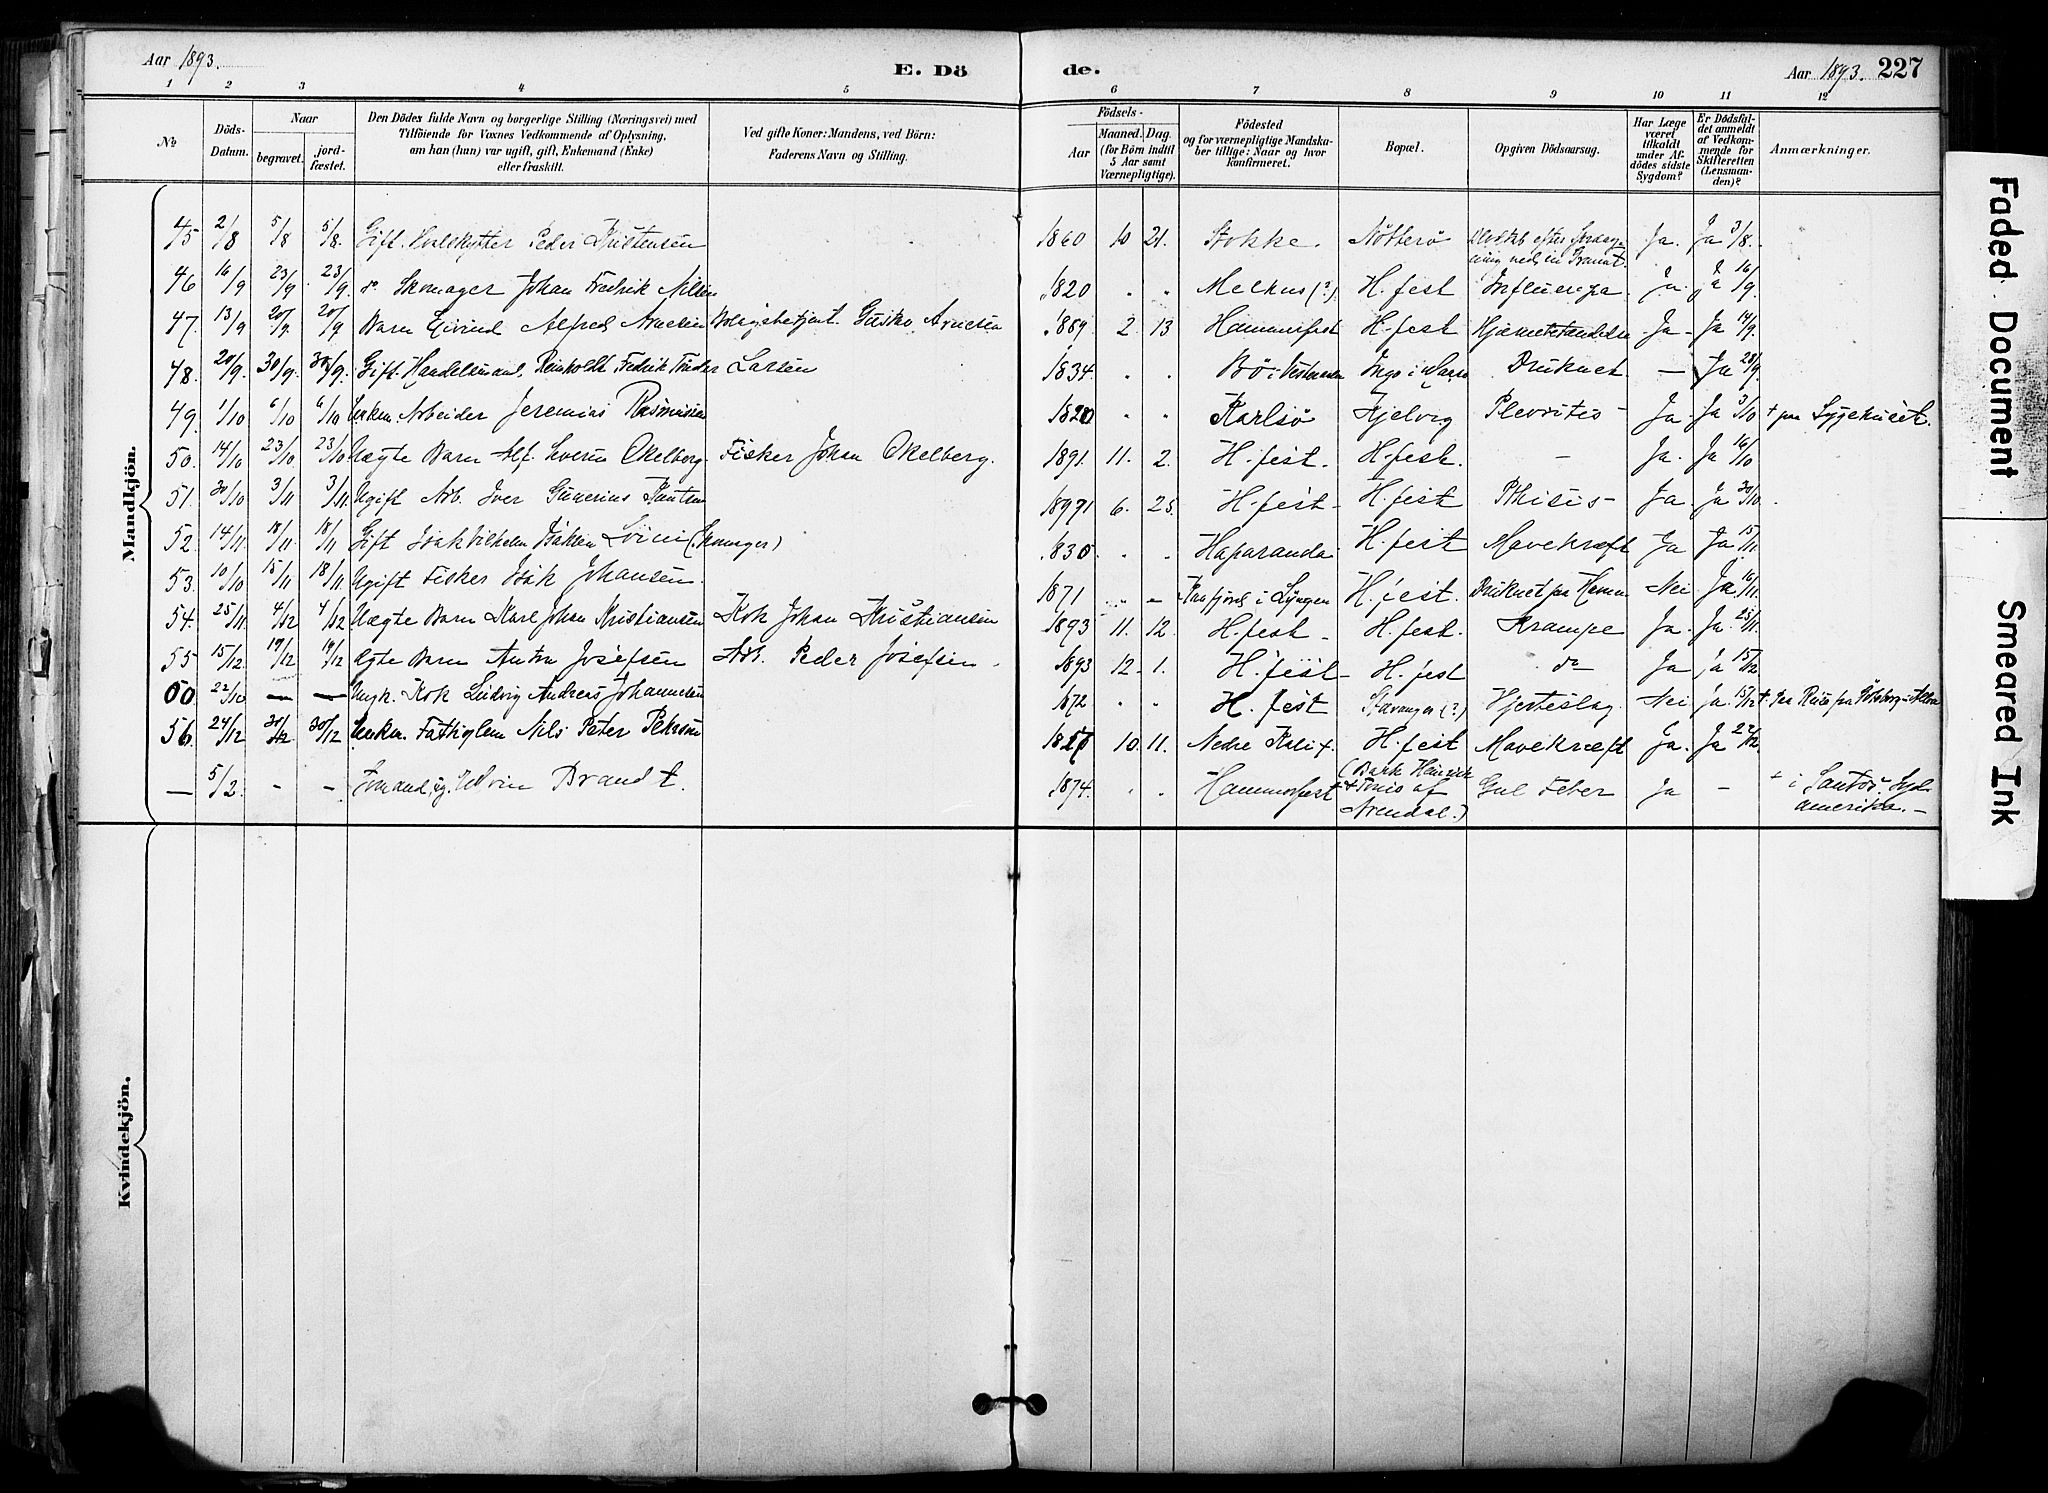 Aar 1893.
E. Dö
de.
Aar 1893. 227
1 2 3 4 5 6 7 8 9 10 11 12
No
Döds-Datum.
Naar
begravet.
jord-fæstet.
Den Dödes fulde Navn og borgerlige Stilling (Næringsvei) med
Tilföiende for Voxnes Vedkommende af Oplysning,
om han (hun) var ugift, gift, Enkemand (Enke)
eller fraskilt.
Ved gifte Koner: Mandens, ved Börn:
Faderens Navn og Stilling.
Födsels-
Aar
Maaned. Dag.
(for Börn indtil
5 Aar samt
Værnepligtige).
Födested
og for værnepligtige Mandska-
ber tillige: Naar og hvor
konfirmeret.
Bopæl.
Opgiven Dödsaarsag.
Har Læge
været
tilkaldt
under Af-
dödes sidste
Sygdom?
Er Dödsfal-
det anmeldt
af Vedkom-
mende for
Skifteretten
(Lensman-
den)?
Anmærkninger.
Mandkjön.
45 2/8 5/8 5/8. Gift. Hvalskytter Peder Kristensen 1860 10 21. Stokke. Nötterö Blodtab efter Ja. Ja 3/8.
46 16/9 23/9 23/9. do Skomager Johan Fredrik Nilsen 1820 " " Melhus (?) H.fest Influenza Ja Ja 16/9.
47. 13/9 20/9 20/9 Barn Eivind Alfred Arnesen Arnesen 1889. 2. 13 Hammerfest H.fest Hjernebetændelse Ja - Ja 14/9.
48. 20/9. 30/9. 30/9. Gift. Handelsmand Reinholdt Fredrik Larsen 1834. " . Bö i Vesteraalen Ingö i Druknet. — Ja 28/9.
49. 1/10 6/10 6/10 Enkem. Arbeider Jeremias Rasmussen 1820 " " Karlsö Pleuritis - Ja - Ja 3/10 + paa Sygehuset.
50. 14/10 23/10 23/10 Uægte Barn Alf Severin Okelberg. Fisker Johan Okelberg. 1891. 11. 2. H.fest. H.fest. - Ja. Ja 16/10
51. 30/10 3/11 3/11. Ugift Arb. Iver Gunerius Knutsen 6. 25. H.fest - H.fest Pthisis - Ja - Ja 30/10.
52. 14/11 18/11 18/11 Gift Isak Vilhelm (Skomager) 1830 . . Haparanda H.fest Mavekræft Ja Ja 15/11.
53. 10/10 15/11 18/11 Ugift Fisker Isak Johansen. 1871 " - i Lyngen H.fest. Druknet paa Havnen Nei Ja 16/11.
54. 25/11 4/12 4/12 Uægte Barn Karl Johan Kristiansen Kok Johan Kristiansen 1893 11. 12. H.fest - H.fest. Krampe Ja. Ja. 25/11.
55 15/12 19/12 19/12 Ægte Barn Anton Josefsen Arb. Peder Josefsen. 1893 12. 1. H.fest - H.fest do Ja Ja 15/12
00. 22/10 — — Ungk. Kok Ludvig Andreas Johannesen 1872 . . H.fest Stavanger (?) Hjerteslag Nei Ja. 15/12 + paa Reise fra Göteborg - Altea
56 24/12 30/12 30/12 Enkem. Fattiglem Nils Peter Petersen 10. 11. Nedre Kalix. H.fest Mavekræft Ja. Ja 27/12.
— 5/2. - - Sömand, ug. Edvin Brandt. 1874. " . Hammerfest (Bark Heinrich
Tönis af
Arendal.) Gul Feber Ja - + i Santos Syd-
amerika. -
Kvindekjön.
Faded Document
Smeared Ink